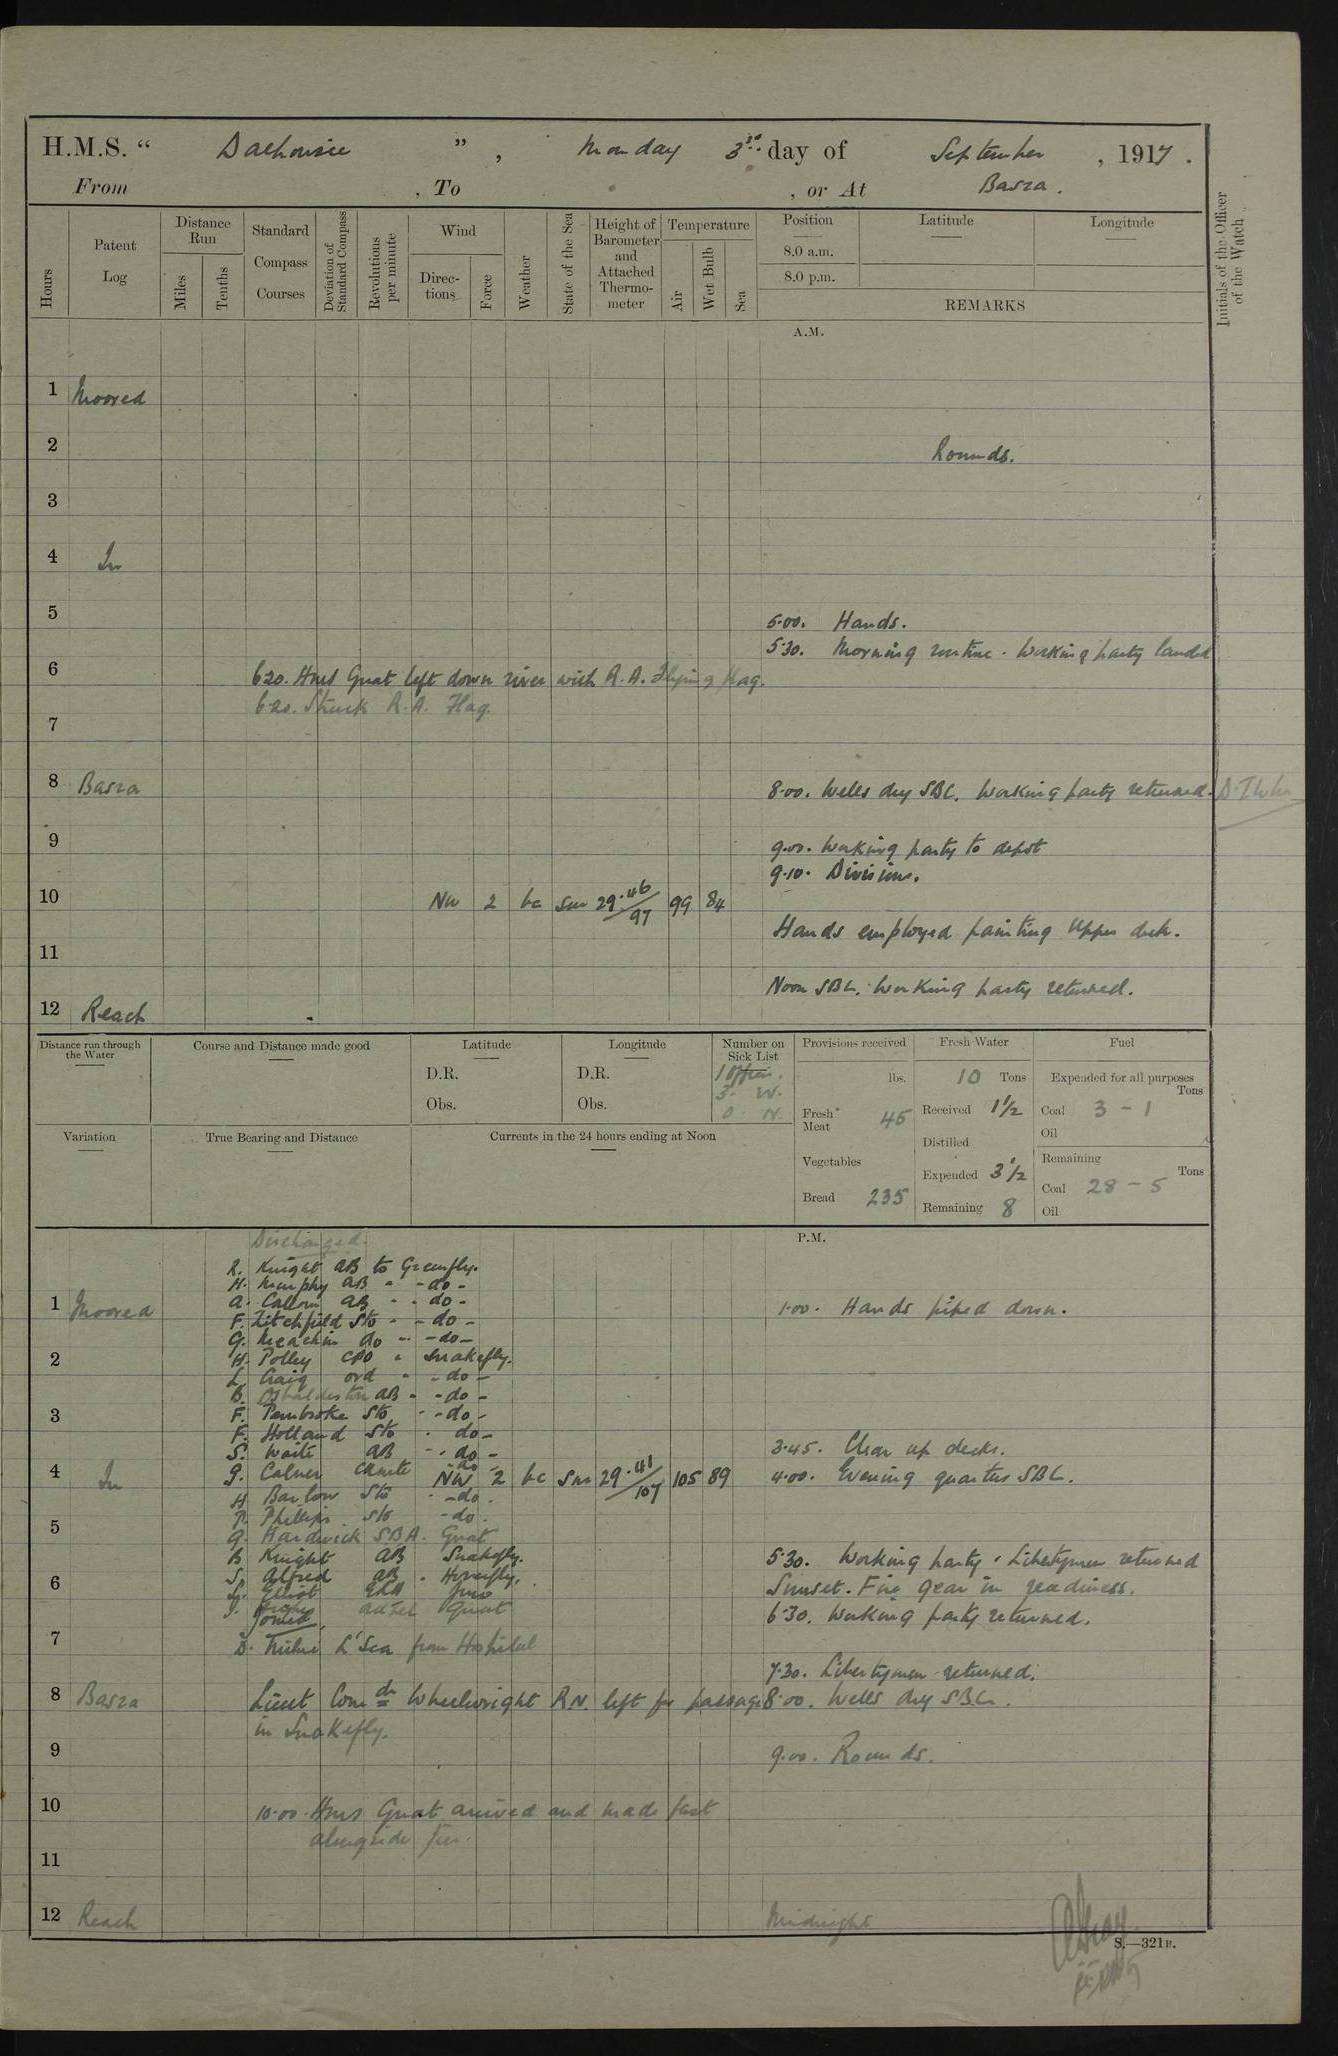 H.M.S. “ Dalhousie ” , Monday 3rd day of September , 1917 .
From , To , or At Basra .
Hours
Patent Log
Distance Run
Miles
Tenths
Standard Compass Courses
Deviation of Standard Compass
Revolutions per minute
Wind
Direc-tions
Force
Weather
State of the Sea
Height of Barometer and Attached Thermo-meter
Temperature
Air
Wet Bulb
Sea
Position
8.0 a.m.
8.0 p.m.
Latitude
Longitude
REMARKS
Initials of the Officer of the Watch
A.M.
1 Moored
2 Rounds.
3
4 In
5 5.00. Hands.
5.30. Morning routine. Working party landed
6 6.20. HMS Gnat left down river with R.A. Flying flag.
6.20. Struck R.A. Flag.
7
8 Basra 8.00. Wells dry SBC. Working party returned.
9 9.00. Working party to depot
9.10. Divisions.
10 NW 2 bc Sm 29.46/97 99 84
Hands employed painting Upper deck.
11
Noon SBC. Working party returned.
12 Reach
Distance run through the Water
Course and Distance made good
Latitude
D.R.
Obs.
Longitude
D.R.
Obs.
Number on Sick List
1 Officer.
3. W.
0. N.
Provisions received
lbs.
Fresh Meat 45
Vegetables
Bread 235
Fresh Water
10 Tons
Received 1 1/2
Distilled
Expended 3 1/2
Remaining 8
Fuel
Expended for all purposes
Tons
Coal 3 - 1
Oil
Remaining
Tons
Coal 28 - 5
Oil
Variation
True Bearing and Distance
Currents in the 24 hours ending at Noon
P.M.
Discharged.
R. Knight AB to Greenfly.
H. Murphy AB " - do -
A. Callow AB " - do -
1 Moored 1.00. Hands piped down.
F. Litchfield Sto " - do -
G. Meachin do " - do -
2 H. Polley CPO " Snakefly.
L. Craig ord " - do -
B. Osbaldeston AB " - do -
3 F. Pembroke Sto " - do -
F. Holland Sto " do -
S. Waite AB " do -
3.45. Clear up decks.
4 In NW 2 bc Sm 29.41/107 105 89 4.00. Evening quarters SBC.
H. Barlow Sto - do.
P. Phillips Sto - do.
5 G. Hardwick SBA. Gnat
B Knight AB Snakefly.
5.30. Working party & Libertymen returned
S. Alfred AB. Honeyfly.
6 Sunset. Fire gear in readiness.
Elliot ERA
Gnat
Joined
6.30. Working party returned.
7 L'Sea from Hospital
7.30. Libertymen returned.
8 Basra Lieut Comdr Wheelwright R.N. left for passage 8.00. Wells dry SBC.
in Snakefly.
9 9.00. Rounds.
10 10.00. HMS Gnat arrived and made fast
alongside
11
12 Reach Midnight
S.—321B.